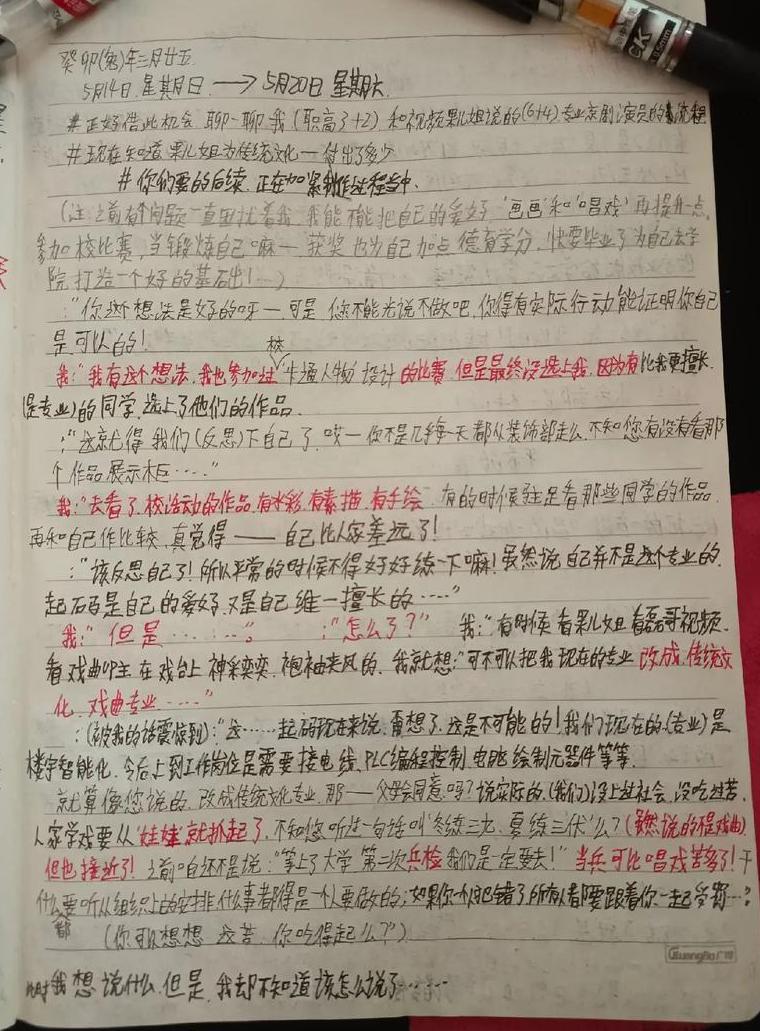 癸卯(兔)年三月廿五
5月14日.星期日. ——> 5月20日 星期六.
#正好借此机会 聊一聊 我(职高3+2) 和视频果儿姐说的(6+4)专业京剧演员的流程
#现在知道 果儿姐为传统文化一付出了多少
#你们要的后续.正在加紧制作过程当中.
(注:之前有个问题一直困扰着我.我能不能把自己的爱好'画画'和'唱戏'再提升一点.
参加校比赛,当锻炼自己嘛一 获奖也为自己加点德育学分.快要毕业了为自己去学
院打造一个好的基石出!…)
:"你这个想法是好的呀一.可是 您不能光说不做吧.你得有实际行动能证明你自己
是可以的!
我:"我有这个想法.我也参加过校'卡通人物'设计的比赛.但是最终没选上我.因为有比我更擅长
(是专业)的同学.选上了他们的作品.
:"这就得我们(反思)下自己了.哎一你不是几乎每一天都从装饰部走么.不知您有没有看那
个作品展示柜……"
我:"去看了.校活动的作品.有水彩.有素描.有手绘.有的时候驻足看那些同学的作品.
再和自己作比较.真觉得——自己比人家差远了!
:"该反思自己了!所以平常的时候不得好好练一下嘛!虽然说自己并不是这个专业的.
起码是自己的爱好.又是自己维一擅长的……"
我:"但是………". :"怎么了?" 我:"有时候看果儿姐看磊哥视频.
看戏曲UP主在戏台上神采奕奕.袍袖夹风的.我就想:"可不可以把我现在的专业改成.传统文
化.戏曲专业……"
:(被我的话震惊到):"这……起码现在来说.甭想了.这是不可能的!我们现在的(专业)是
楼宇智能化.今后上到工作岗位是需要接电线.PLC编程控制.电路绘制元器件等等.
就算像您说的.改成传统文化专业.那一父母会同意吗?说实际的.(我们)没上过社会.没吃过苦.
人家学戏要从'娃娃'就抓起了.不知您听过一句话叫'冬练三九.夏练三伏'么?(虽然说的是戏曲)
但也接近了!之前咱还不是说:"等上了大学第二次兵检我们是一定要去!"当兵可比唱戏苦多了!干
什么都要听从组织上的安排.什么事都得是一个人要做好的;如果你一人犯错了.所有人都要跟着你一起受罚…"
(你可以想想 这苦.你吃得起么?)
GuangBo广博
此时我想说什么.但是.我却不知道该怎么说了……